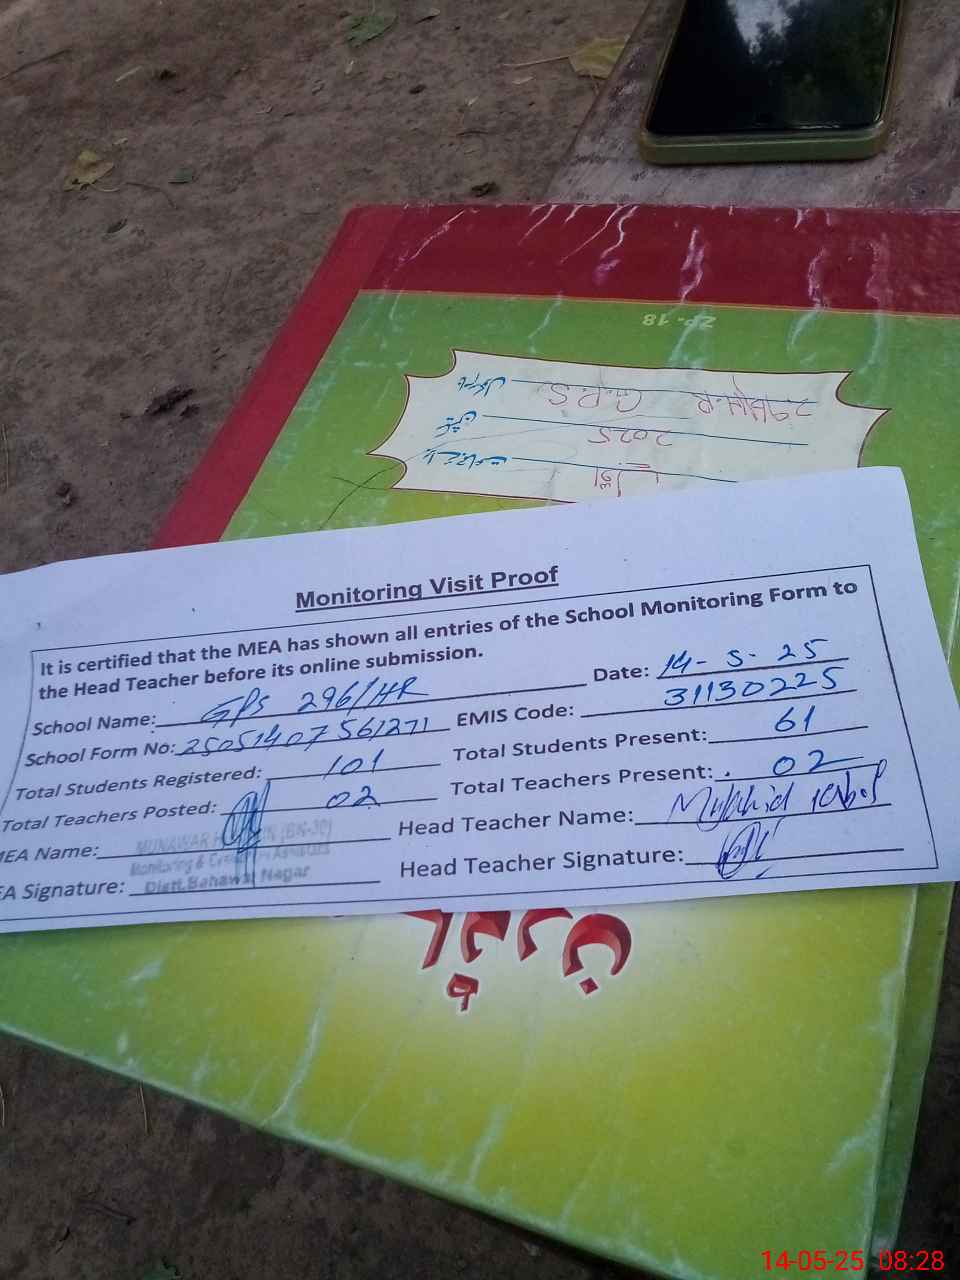 ZP-18
G.P.S 296/H-R
2025
Monitoring Visit Proof
It is certified that the MEA has shown all entries of the School Monitoring Form to
the Head Teacher before its online submission.
School Name: GPS 296/HR Date: 14-5-25
School Form No: 25051407561271 EMIS Code: 31130225
Total Students Registered: 101 Total Students Present: 61
Total Teachers Posted: 02 Total Teachers Present: 02
MEA Name: MUNAWAR (BN-30) Head Teacher Name:
Monitoring &
EA Signature: Distt. Bahawal Nagar Head Teacher Signature:
14-05-25 08:28